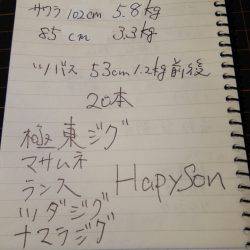 サワラ 102cm 5.8kg
85cm 3.3kg
ツバス 53cm 1.2kg前後
20本
極東ジグ
マサムネ
ランス
HapySon
ツダジグ
ナマラジグ